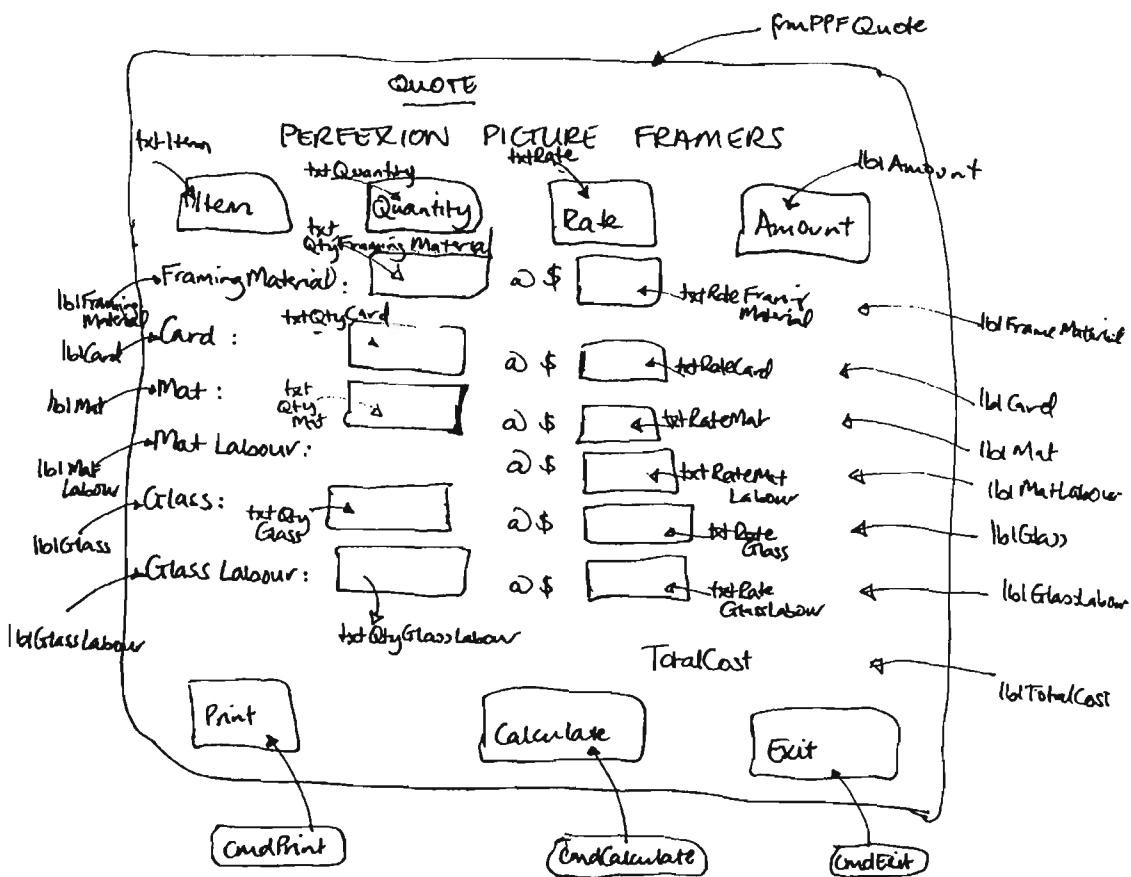 frmPPFQuote
QUOTE
PERFEXION PICTURE FRAMERS
txtItem
txtQuantity
txtRate
lblAmount
Item
Quantity
Rate
Amount
txt
QtyFramingMaterial
FramingMaterial:
a) $
txtRateFraming
Material
lblFraming
Material
lblFrameMaterial
txtQtyCard
Card:
a) $
txtRateCard
lblCard
lblCard
Mat:
txt
Qty
Mat
a) $
txtRateMat
lblMat
lblMat
Mat Labour:
a) $
txtRateMat
Labour
lblMat
Labour
lblMatLabour
Glass:
txtQty
Glass
a) $
txtRate
Glass
lblGlass
lblGlass
Glass Labour:
a) $
txtRate
GlassLabour
lblGlassLabour
lblGlassLabour
txtQtyGlassLabour
TotalCost
lblTotalCost
Print
Calculate
Exit
cmdPrint
cmdCalculate
cmdExit